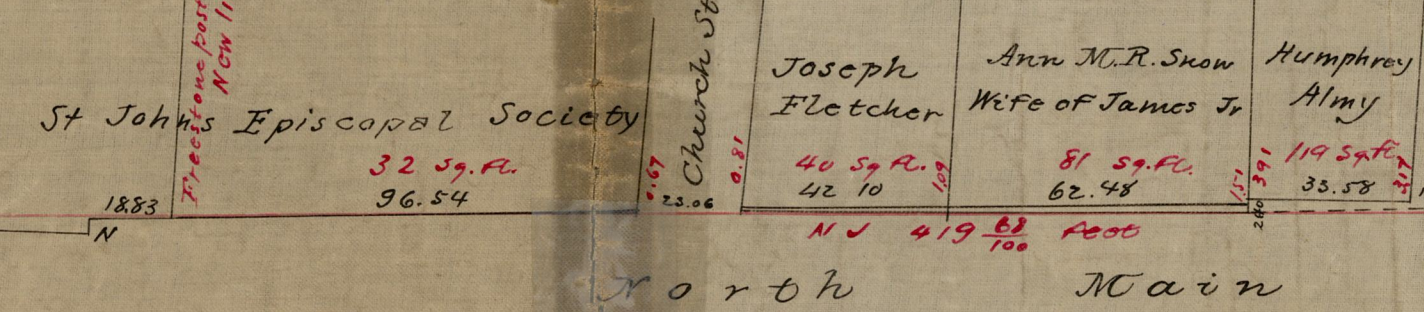 Freestone post
Now li
St Johns Episcopal Society
32 Sq. ft.
96.54
18.83
N
0.67
Church St
23.06
0.81
Joseph
Fletcher
40 Sq ft.
42 10
1.09
Ann M.R. Snow
Wife of James Jr
81 Sq. ft.
62.48
1.51
Humphrey
Almy
3.91
119 Sq. ft.
33.58
3.17
419 68/100 feet
North Main